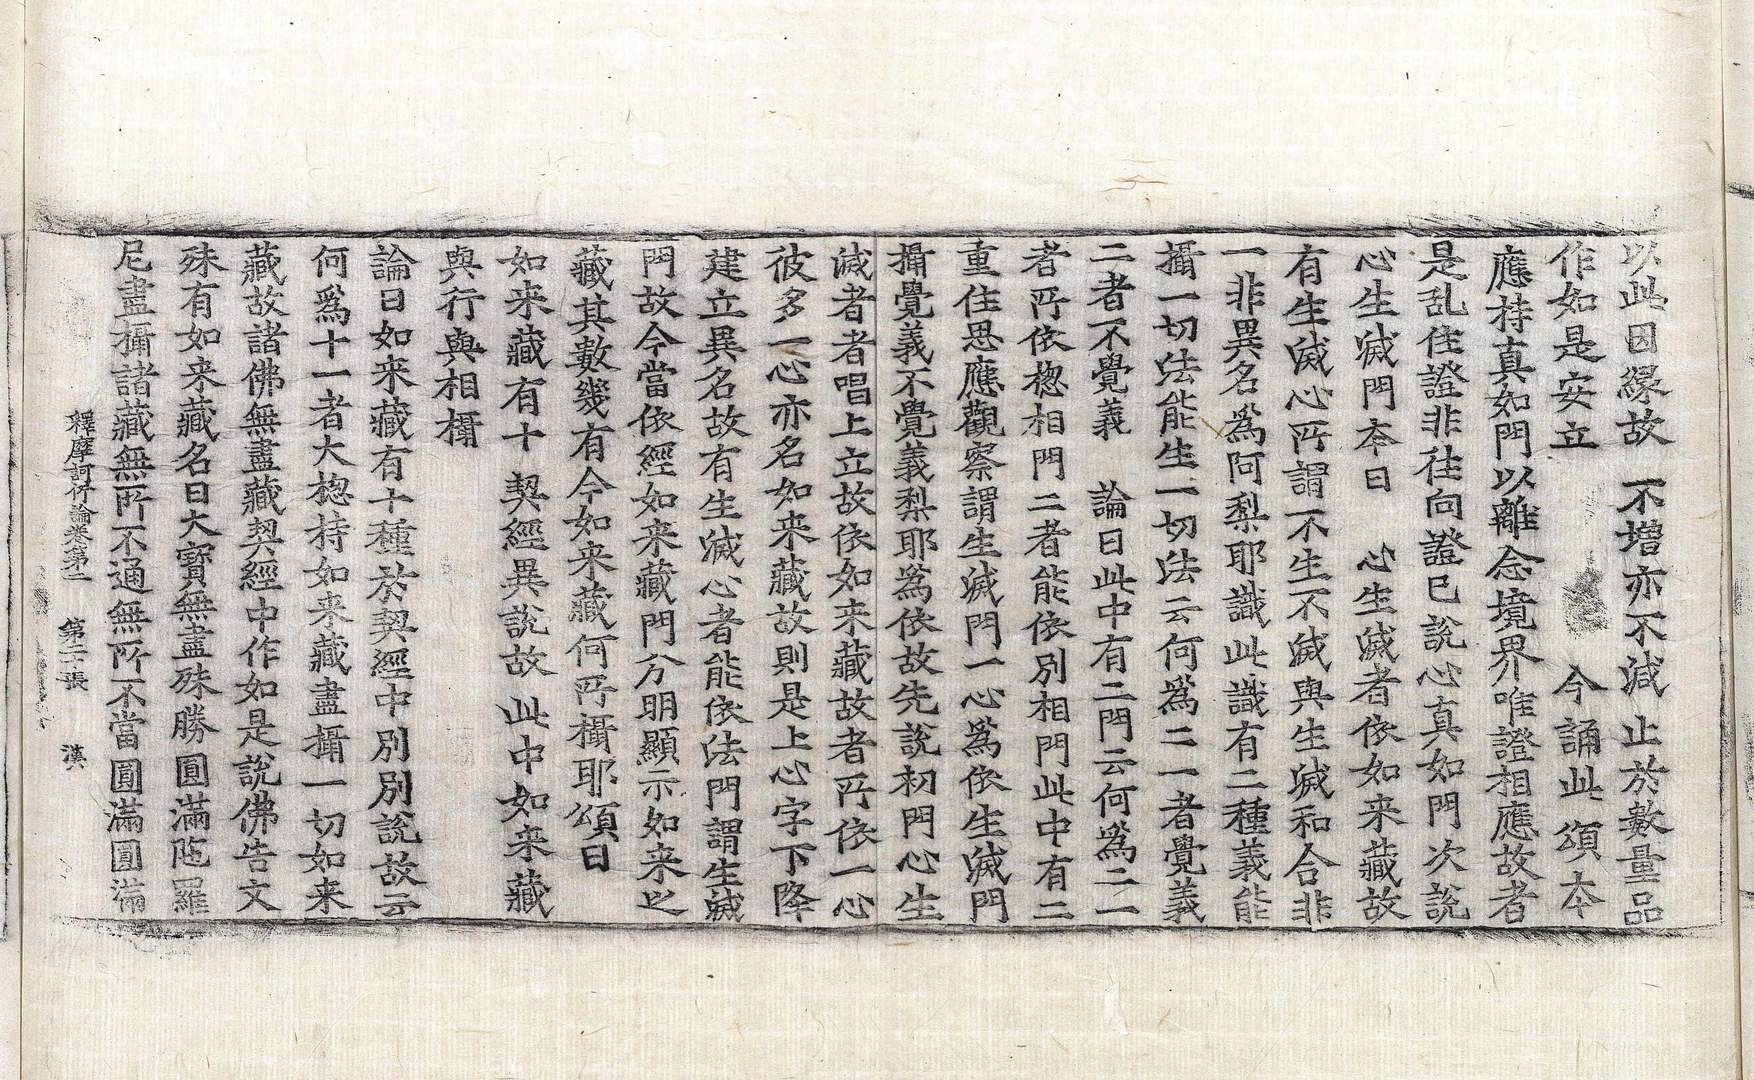 以此因緣故　不增亦不減　止於數量品
作如是安立　今誦此頌本
應持真如門以離念境界唯證相應故者
是乱住證非往向證已說心真如門次說
心生滅門本曰　心生滅者依如来藏故
有生滅心所謂不生不滅與生滅和合非
一非異名爲阿梨耶識此識有二種義能
攝一切法能生一切法云何爲二一者覺義
二者不覺義　論曰此中有二門云何爲二一
者所依揔相門二者能依別相門此中有二
重住思應觀察謂生滅門一心爲依生滅門
攝覺義不覺義梨耶爲依故先說初門心生
滅者者唱上立故依如来藏故者所依一心
彼多一心亦名如来藏故則是上心字下降
建立異名故有生滅心者能依法門謂生滅
門故今當依經如来藏門分明顯示如来之
藏其數幾有今如来藏何所攝耶頌曰
如来藏有十　契經異說故　此中如来藏
與行與相攝
論曰如来藏有十種於契經中別別說故云
何爲十一者大揔持如来藏盡攝一切如来
藏故諸佛無盡藏契經中作如是說佛告文
殊有如来藏名曰大寶無盡殊勝圓滿陁羅
尼盡攝諸藏無所不通無所不當圓滿圓滿
釋摩訶衍論卷第二　第二十張　漢